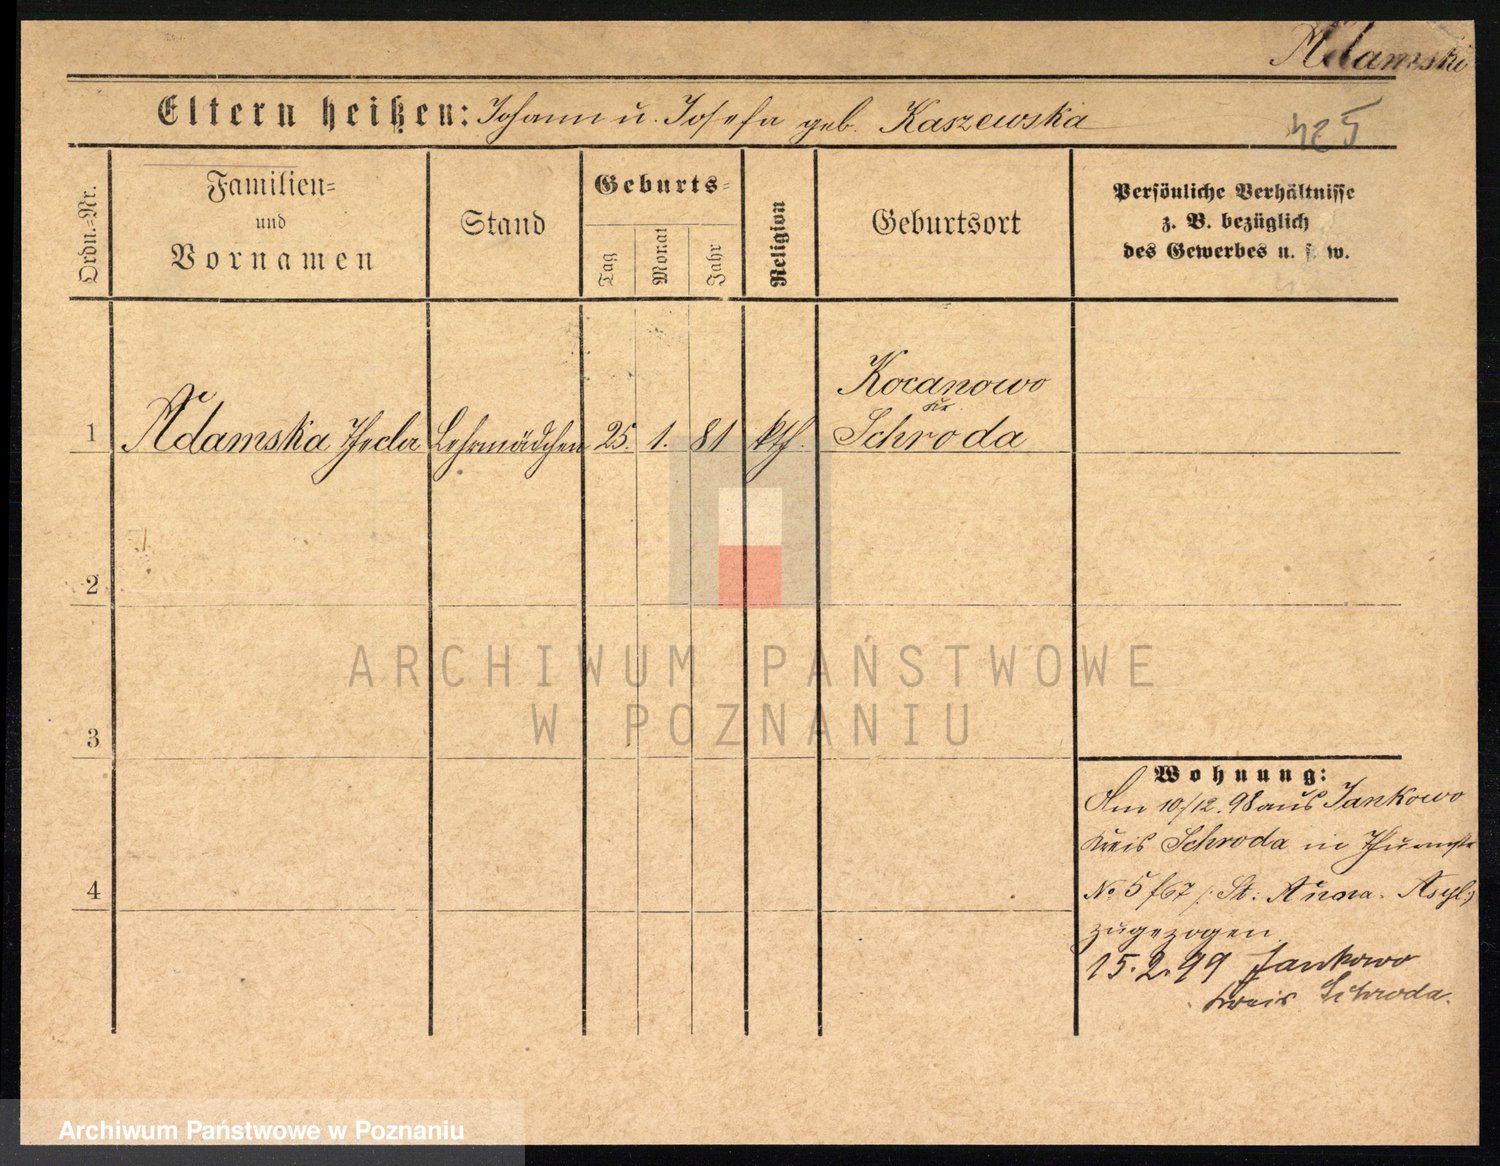 Adamski
Eltern heißen: Johann u. Josefa geb. Kaszewska
425
Ordn.=Nr.
Familien=
und
Vornamen
Stand
Geburts=
Tag
Monat
Jahr
Religion
Geburtsort
Persönliche Verhältnisse
z. B. bezüglich
des Gewerbes u. s. w.
Kocanowo
Kr.
1 Adamska Thecla Lehrmädchen 25. 1. 81 kth. Schroda
2
3
4
ARCHIWUM PAŃSTWOWE
W POZNANIU
Wohnung:
Am 10/12. 98 aus Jankowo
Kreis Schroda in
No 5 f67 /: St. Anna-Asyl :/
zugezogen
15. 2. 99 Jankowo
Kreis Schroda.
Archiwum Państwowe w Poznaniu